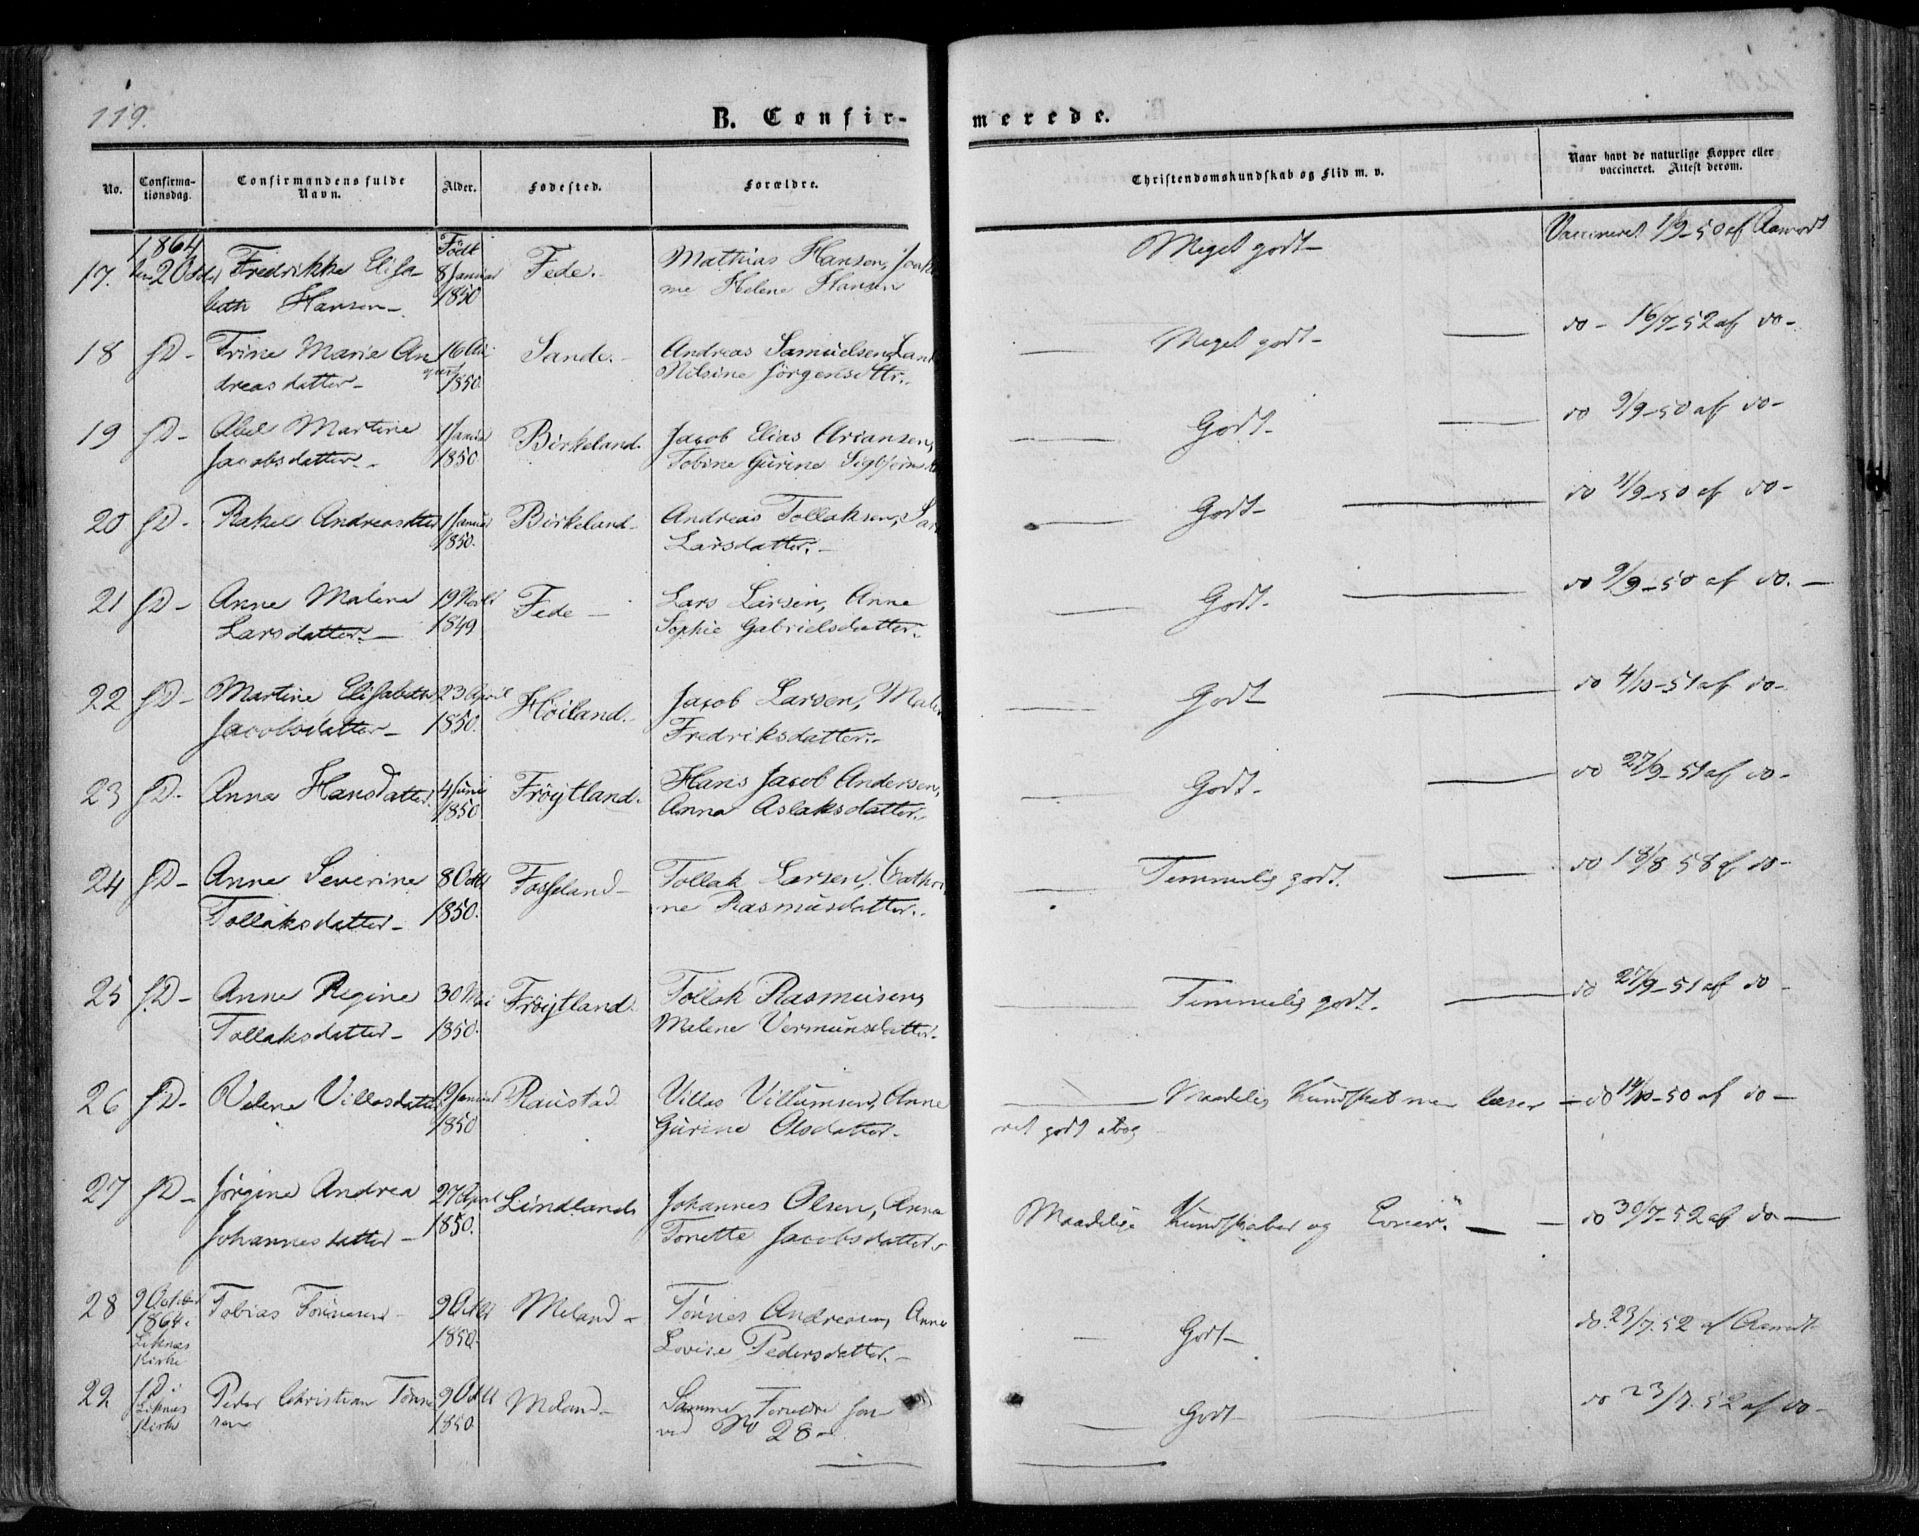 119.
B. Confir-
merede.
No.
Confirma-
tionsdag.
Confirmandens fulde
Navn.
Alder.
Fødested.
Forældre.
Christendomskundskab og Flid m. v.
Naar havt de naturlige Kopper eller
vaccineret. Attest derom.
1864
Født
17. den 2 Octbr Fredrikke Elisa- 8 Januar Fede. Mathias Hansen, Meget godt- Vaccineret 1/9-50 af Aamodt
beth Hansen- 1850 me Helene Hansen
18 fD- Trine Marie An 16 Sande.- Andreas Samuelsen, Meget godt- do- 16/7-52 af do-
dreasdatter- 1850. Nilsine Jørgensdttr.
19 fD- Abel Martine 1 Januar Birkeland. Jacob Elias Ariansen, Godt- do 9/9-50 af do-
Jacobsdatter.- 1850 Tobine Gurine
20 fD- Rakel Andreasdtter 1 Januar Birkeland- Andreas Tollaksen, Godt- do 9/9-50 af do-
1850. Larsdatter.-
21 fD- Anne Malene 19 Novbr Fede- Lars Larsen, Anne Godt. do 9/9-50 af do.-
Larsdatter- 1849 Sophie Gabrielsdatter.
22 fD- Martine Elisabeth 23 April Høiland.- Jacob Larsen, Godt do 4/10-51 af do-
Jacobsdatter- 1850. Fredriksdatter.-
23 fD- Anna Hansdatter 4 Juni Frøytland. Hans Jacob Andersen, Godt. do 27/9-51 af do-
1850 Anna Aslaksdatter.
24 fD- Anne Severine 8 Octbr Fosseland- Tollak Larsen, Cathri Temmelig godt. do 18/8 58 af do-
Tollaksdatter- 1850. ne Rasmusdatter.
25 fD- Anne Regine 30 Mai Frøytland. Tollak Rasmusen, Temmelig godt. do 27/9-51 af do-
Tollaksdatter- 1850. Malene Vermunsdatter.
26 fD- Villasdatter 19 Januar Raustad Villas Villumsen, Anne Maadelig Kundskab men læser do 14/10-50 af do-
1850 Gurine Olsdatter- ret godt i bog
27 fD- Jørgine Andrea 27 April Lindland Johannes Olsen, Anna Maadelige Kundskaber og Evner. do 30/7-52 af do-
Johannesdatter- 1850. Tonette Jacobsdatter.
28 9 October Tobias Tønnesen- 9 Octbr Meland- Tønnes Andreasen, Anne Godt- do. 23/7.52 af Aamodt
1864 i 1850. Lovise Pedersdatter.-
Liknes
Kirke
29 fD i Peder Christian Tønne 9 Octbr Meland- Samme Forældre som Godt- do 23/7.52 af do-
Liknes sen 1850. ved No 28-
Kirke